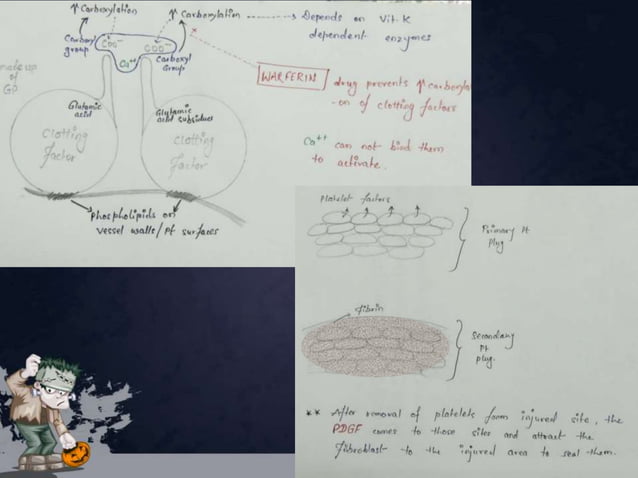 ↑ Carboxylation
↑ Carboxylation → Depends on Vit-K
dependent enzymes
Carboxyl
group
COO⁻
COO⁻
Ca⁺⁺
Carboxyl
Group
made up
of
GP
Glutamic
acid
Glutamic
acid subsidues
Clotting
Factor
Clotting
Factor
WARFERIN
drug prevents ↑ carboxylat
-on of clotting factors
Ca⁺⁺ can not bind them
to activate.
Phospholipids on
vessel walls / Pt surfaces
Platelet factors
Primary Pt
Plug
Fibrin
Secondary
Pt
plug.
** After removal of platelets from injured site, the
PDGF comes to those sites and attract the
Fibroblast to the injured area to seal them.